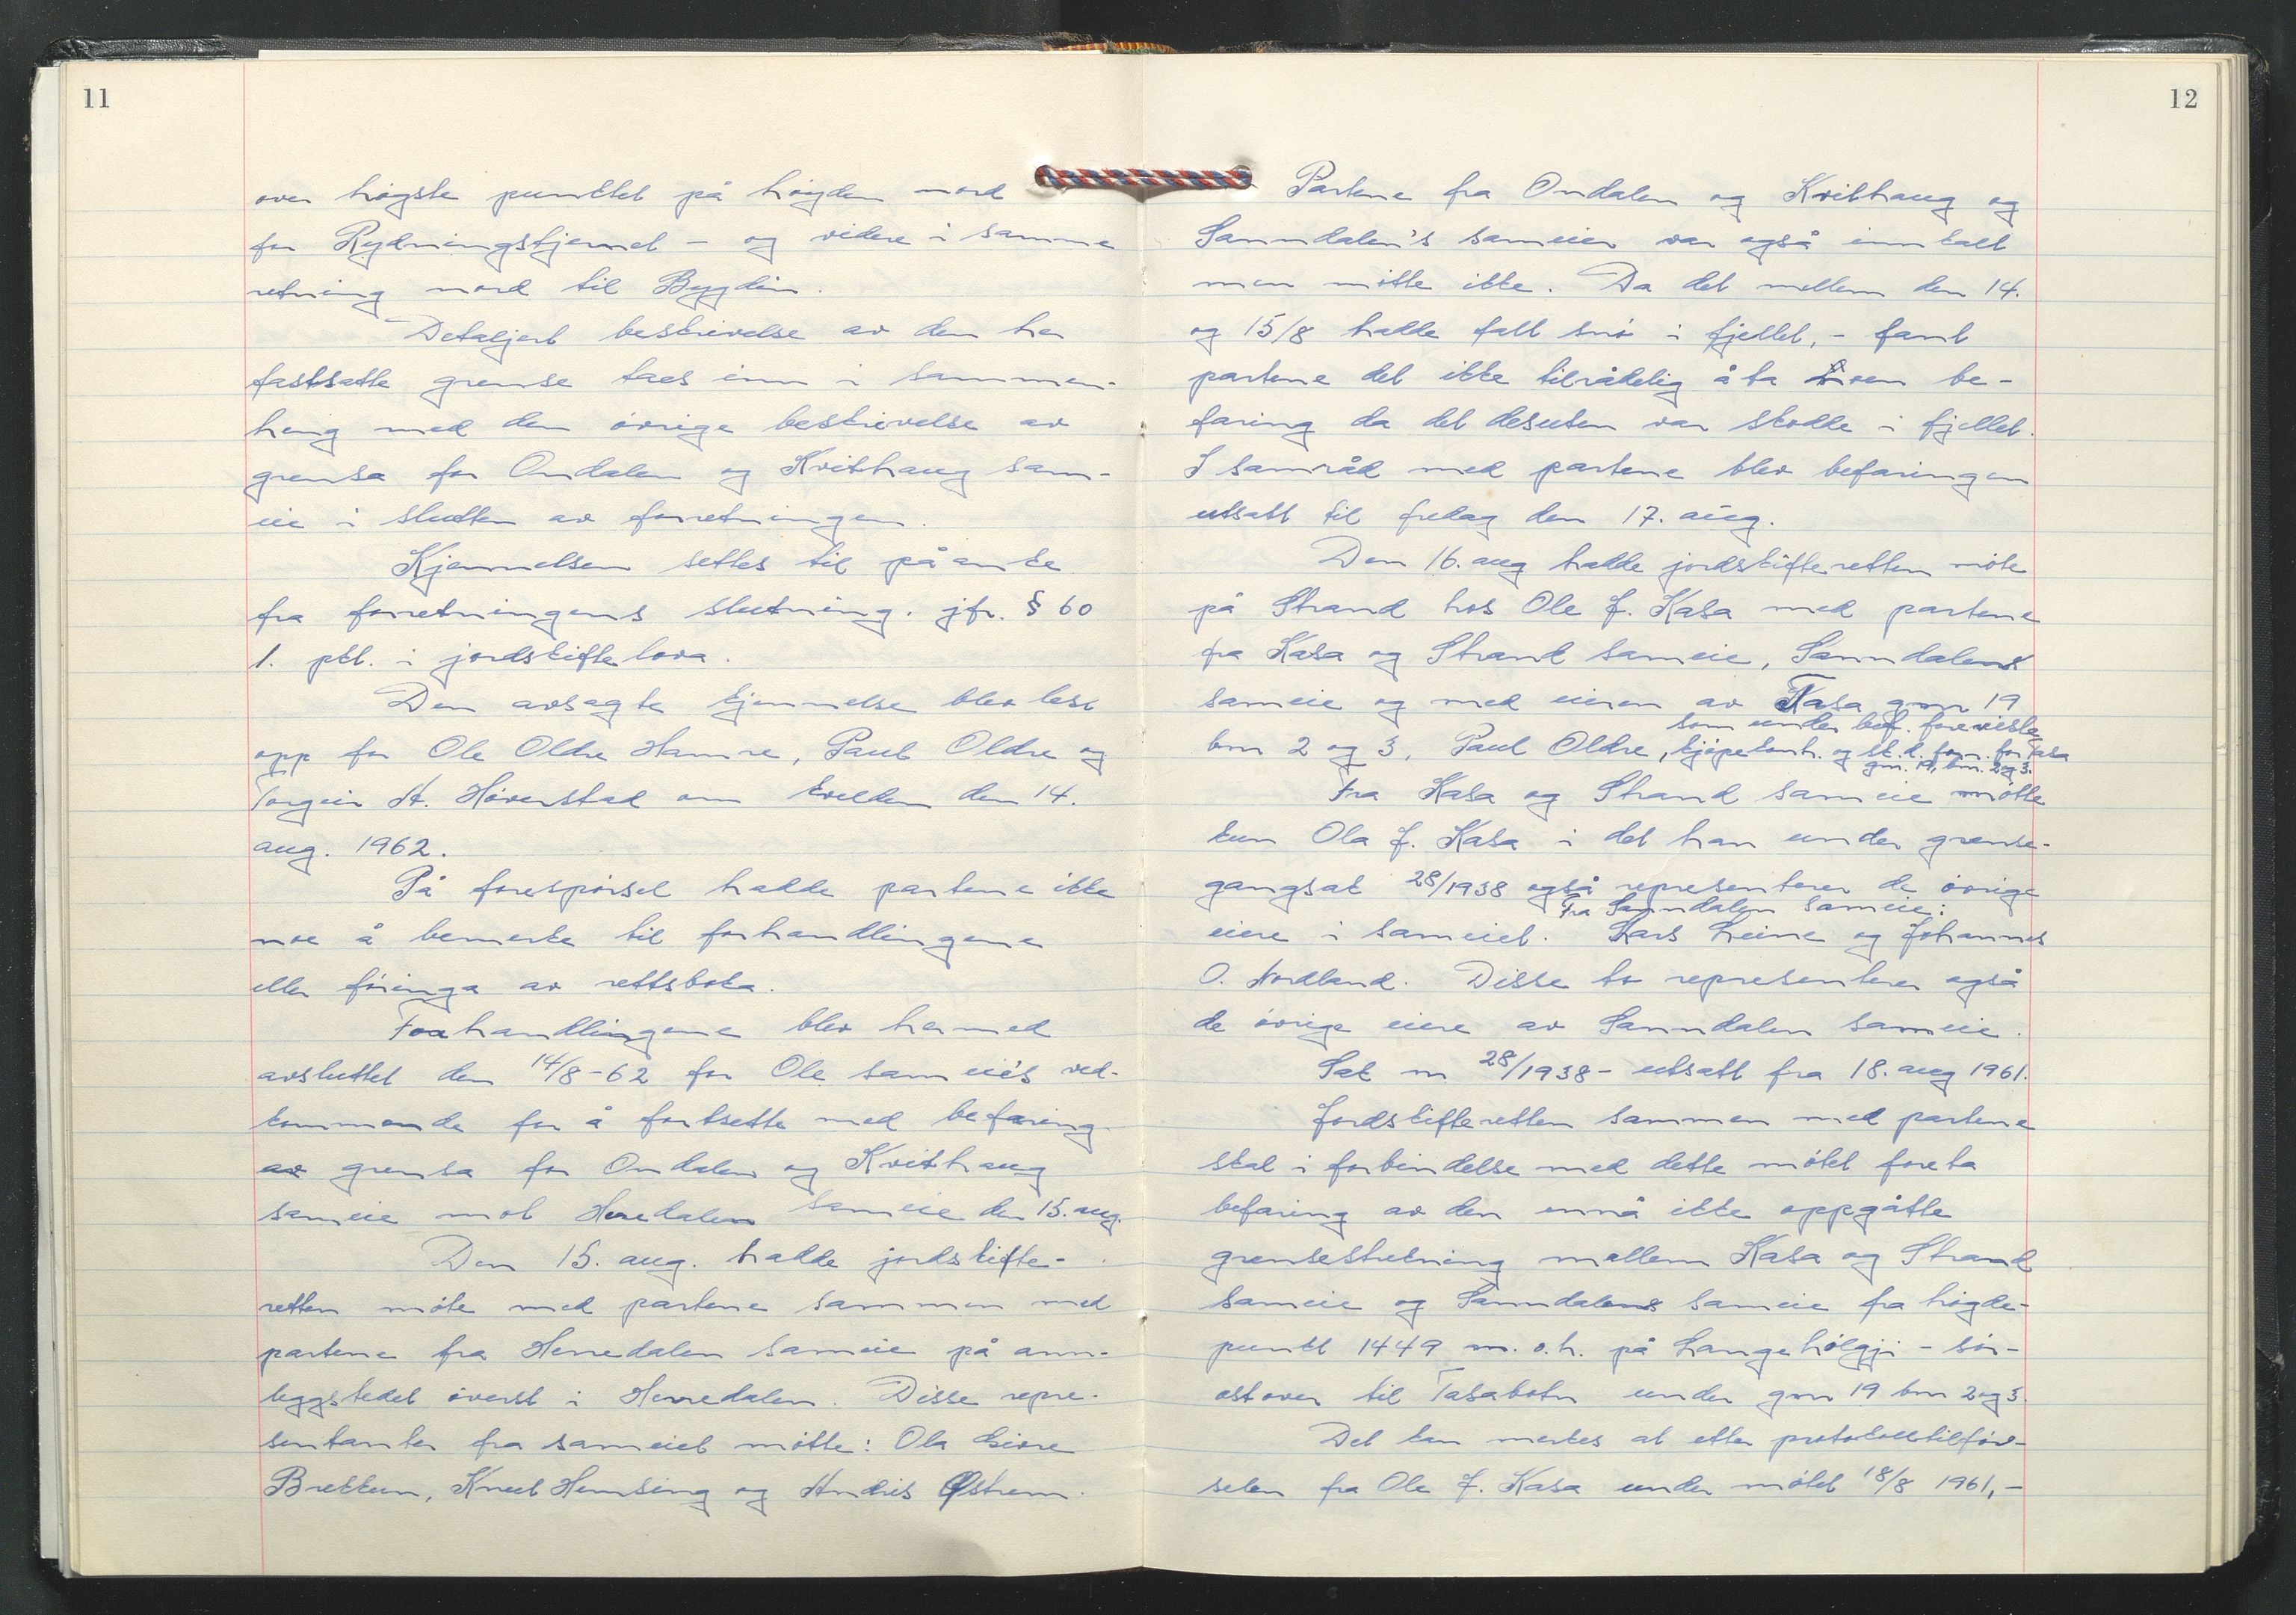 11
over høgste punktet på høyden nord
for Rydningstjernet – og videre i samme
retning nord til Bygdin.
Detaljert beskrivelse av den her
fastsatte grense taes inn i sammen-
heng med den øvrige beskrivelse av
grensa for Ondalen og Kvithaug sam-
eie i slutten av forretningen.
Kjennelsen settes til påanke
fra forretningens slutning. jfr. § 60
1. pkt. i jordskiftelova.
Den avsagte kjennelse blev lest
opp for Ole Oldre Hamre, Paul Oldre og
Torgeir A. Høverstad om kvelden den 14.
aug. 1962.
På forespørsel hadde partene ikke
noe å bemerke til forhandlingene
eller føringa av rettsboka.
Forhandlingene blev hermed
avsluttet den 14/8-62 for Ole sameie's ved-
kommende for å fortsette med befaring
av grensa for Ondalen og Kvithaug
sameie mot Herredalen sameie den 15. aug.
Den 15. aug. hadde jordskifte-
retten møte med partene sammen med
partene fra Herredalen sameie på ann-
leggstedet øverst i Herredalen. Disse repre-
sentanter fra sameiet møtte: Ola
Brekkum, Knut Hemsing og Andris Østrem.
12
Partene fra Ondalen og Kvithaug og
Sanndalen's sameier var også innkalt
men møtte ikke. Da det mellem den 14.
og 15/8 hadde falt snø i fjellet, – fant
partene det ikke tilrådelig å ta noen be-
faring da det desuten var skodde i fjellet.
I samråd med partene blev befaringen
utsatt til fredag den 17. aug.
Den 16. aug hadde jordskifteretten møte
på Strand hos Ole J. Kasa med partene
fra Kasa og Strand sameie, Sanndalens
sameie og med eieren av Tasa gnr 19
som under bef. foreviste
bnr 2 og 3, Paul Oldre, kjøpekontr. og sk.d. forr. for Tasa
gnr. 19, bnr. 2 og 3.
Fra Kasa og Strand sameie møtte
kun Ola J. Kasa i det han under grense-
gangsak 28/1938 også representerer de øvrige
Fra Sanndalen sameie:
eiere i sameiet. Lars Leine og Johannes
O. Nordland. Disse to representerer også
de øvrige eiere av Sanndalen sameie.
Sak nr 28/1938 – utsatt fra 18. aug 1961.
Jordskifteretten sammen med partene
skal i forbindelse med dette møtet foreta
befaring av den ennå ikke oppgåtte
grensestrekning mellem Kasa og Strand
sameie og Sanndalens sameie fra høgde-
punkt 1449 m. o. h. på Langehølgji – sør-
østover til Tasabotn under gnr 19 bnr 2 og 3.
Det kan merkes at etter protokolltilfør-
selen fra Ole J. Kasa under møtet 18/8 1961, –